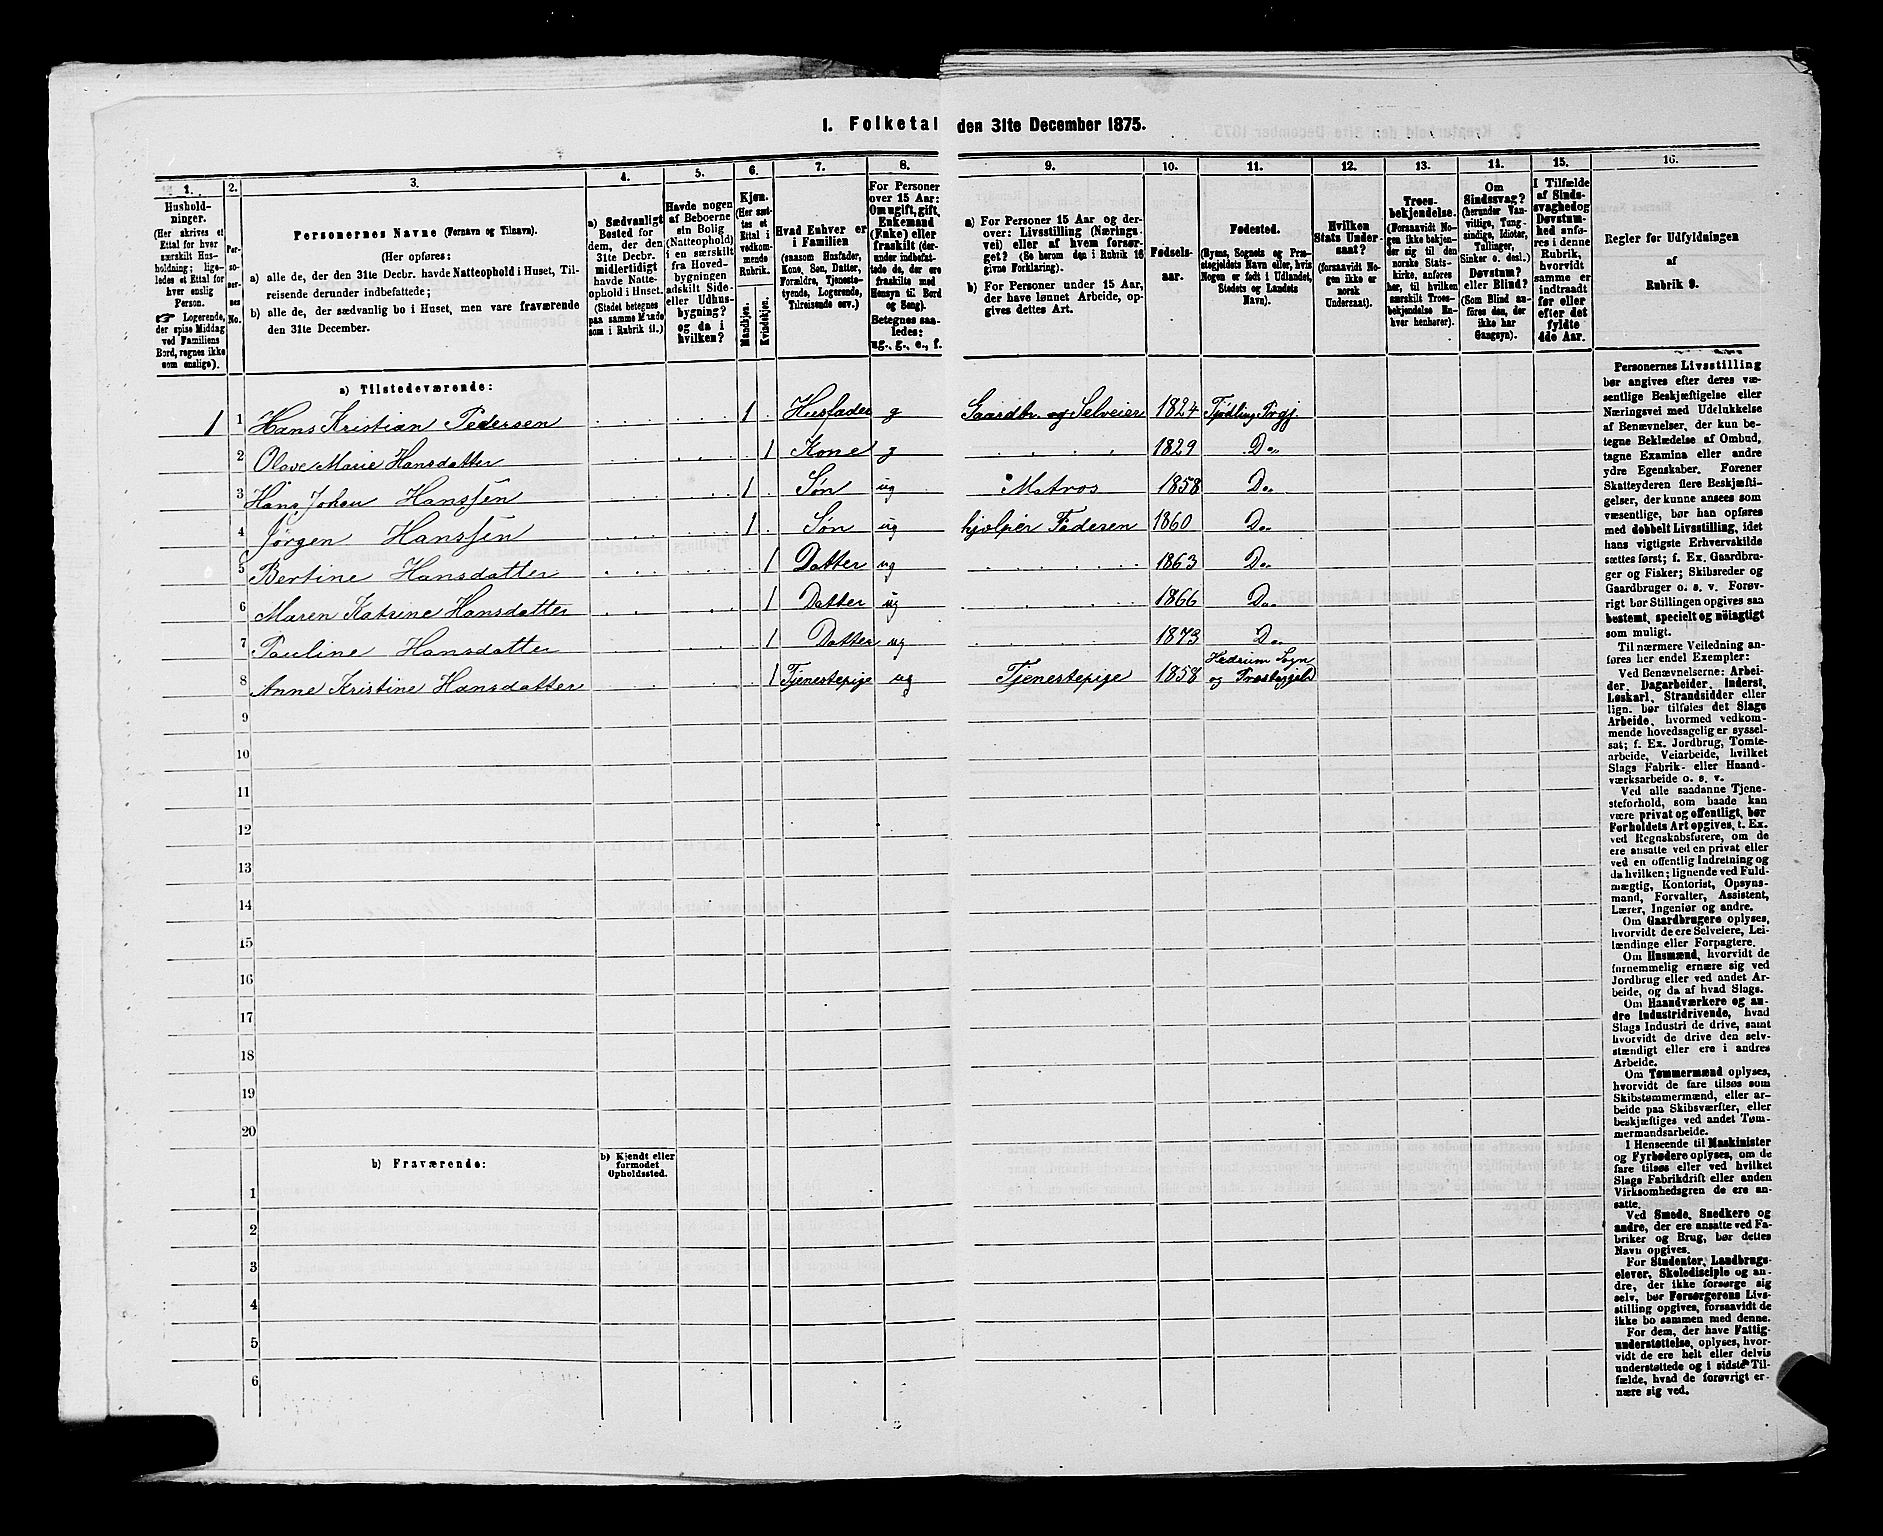 1. Folketal den 31te December 1875.
1. 2. 3. 4. 5. 6. 7. 8. 9. 10. 11. 12. 13. 14. 15. 16.
Hushold-
ninger.
(Her skrives et
Ettal for hver
særskilt Hus-
holdning; lige-
ledes et Ettal for
hver enslig
Person.
☞ Logerende,
der spise Middag
ved Familiens
Bord, regnes ikke
som enslige).
Per-
so-
ner-
nes
No.
Personernes Navne (Fornavn og Tilnavn).
(Her opføres:
a) alle de, der den 31te Decbr. havde Natteophold i Huset, Til-
reisende derunder indbefattede;
b) alle de, der sædvanlig bo i Huset, men vare fraværende
den 31te December.
a) Sædvanligt
Bosted for
dem, der den
31te Decbr.
midlertidigt
havde Natte-
ophold i Huset.
(Stedet betegnes
paa samme Maade
som i Rubrik 11.)
Havde nogen
af Beboerne
sin Bolig
(Natteophold)
i en særskilt
fra Hoved-
bygningen
adskilt Side-
eller Udhus-
bygning?
og da i
hvilken?
Kjøn.
(Her sæt-
tes et
Ettal i
vedkom-
mende
Rubrik.
Mandkjøn.
Kvindekjøn.
Hvad Enhver er
i Familien
(saasom Husfader,
Kone, Søn, Datter,
Forældre, Tjeneste-
tyende, Logerende,
Tilreisende osv.)
For Personer
over 15 Aar:
Om ugift, gift,
Enkemand
(Enke) eller
fraskilt (der-
under indbefat-
tede de, der ere
fraskilte med
Hensyn til Bord
og Seng).
Betegnes saa-
ledes:
ug., g., e., f.
a) For Personer 15 Aar og der-
over: Livsstilling (Nærings-
vei) eller af hvem forsør-
get? (Se herom den i Rubrik 16
givne Forklaring).
b) For Personer under 15 Aar,
der have lønnet Arbeide, op-
gives dettes Art.
Fødsels-
aar.
Fødested.
(Byens, Sognets og Præ-
stegjeldets Navn eller, hvis
Nogen er født i Udlandet,
Stedets og Landets
Navn).
Hvilken
Stats Under-
saat?
(forsaavidt No-
gen ikke er
norsk
Undersaat).
Troes-
bekjendelse.
(Forsaavidt No-
gen ikke bekjen-
der sig til den
norske Stats-
kirke, anføres
her, til hvilken
særskilt Troes-
bekjendelse En-
hver henhører).
Om
Sindssvag?
(herunder Van-
vittige, Tung-
sindige, Idioter,
Tullinger,
Sinker o. desl.)
Døvstum?
eller Blind?
(Som Blind an-
føres den, der
ikke har
Gangsyn).
I Tilfælde
af Sinds-
svaghed og
Døvstum-
hed anfø-
res i denne
Rubrik,
hvorvidt
samme er
indtraadt
før eller
efter det
fyldte
4de Aar.
Regler for Udfyldningen
af
Rubrik 9.
a) Tilstedeværende:
1 1 Hans Kristian Pedersen 1 Husfader g Gaardbr. og Selveier 1824 Tjødling Prgj.
2 Olave Marie Hansdatter 1 Kone g 1829 Do.
3 Hans Johan Hanssen 1 Søn ug Matros 1858 Do
4 Jørgen Hanssen 1 Søn ug hjelper Faderen 1860 Do
5 Bertine Hansdatter 1 Datter ug 1863 Do
6 Maren Katrine Hansdatter 1 Datter ug 1866 Do
7 Pauline Hansdatter 1 Datter ug 1873 Do
8 Anne Kristine Hansdatter 1 Tjenestepige ug Tjenestepige 1858 Hedrum Sogn
og Præstegjeld
9
10
11
12
13
14
15
16
17
18
19
20
b) Fraværende:
b) Kjendt eller
formodet
Opholdssted.
1
2
3
4
5
6
Personernes Livsstilling
bør angives efter deres væ-
sentlige Beskjæftigelse eller
Næringsvei med Udelukkelse
af Benævnelser, der kun be-
tegne Beklædelse af Ombud,
tagne Examina eller andre
ydre Egenskaber. Forener
Skatteyderen flere Beskjæfti-
gelser, der kunne ansees som
væsentlige, bør han opføres
med dobbelt Livsstilling, idet
hans vigtigste Erhvervskilde
sættes først; f. Ex. Gaardbru-
ger og Fisker; Skibsreder og
Gaardbruger o. s. v. Forøv-
rigt bør Stillingen opgives saa
bestemt, specielt og nöiagtigt
som muligt.
Til nærmere Veiledning an-
føres her endel Exempler:
Ved Benævnelserne: Arbei-
der, Dagarbeider, Inderst,
Løskarl, Strandsidder eller
lign. bør tilføies det Slags
Arbeide, hvormed vedkom-
mende hovedsagelig er syssel-
sat; f. Ex. Jordbrug, Tomte-
arbeide, Veiarbeide, hvilket
Slags Fabrik- eller Haand-
værksarbeide o. s. v.
Ved alle saadanne Tjene-
steforhold, som baade kan
være privat og offentligt, bør
Forholdets Art opgives, t. Ex.
ved Regnskabsførere, om de
ere ansatte ved en privat eller
ved en offentlig Indretning og
da hvilken; lignende ved Fuld-
mægtig, Kontorist, Opsyns-
mand, Forvalter, Assistent,
Lærer, Ingeniør og andre.
Om Gaardbrugere oplyses,
hvorvidt de ere Selveiere, Lei-
lændinge eller Forpagtere.
Om Husmænd, hvorvidt de
fornemmelig ernære sig ved
Jordbrug eller ved andet Ar-
beide, og da af hvad Slags.
Om Haandværkere og an-
dre Industridrivende, hvad
Slags Industri de drive, samt
hvorvidt de drive den selv-
stændigt eller ere i andres
Arbeide.
Om Tømmermænd oplyses,
hvorvidt de fare tilsøs som
Skibstømmermænd, eller ar-
beide paa Skibsværfter, eller
beskjæftiges ved andet Tøm-
mermandsarbeide.
I Henseende til Maskinister
og Fyrbødere oplyses, om de
fare tilsøs eller ved hvilket
Slags Fabrikdrift eller anden
Virksomhedsgren de ere an-
satte.
Ved Smede, Snedkere og
andre, der ere ansatte ved Fa-
briker og Brug, bør dettes
Navn opgives.
For Studenter, Landbrugs-
elever, Skoledisciple og an-
dre, der ikke forsørge sig
selv, bør Forsørgerens Livs-
stilling opgives, forsaavidt de
ikke bo sammen med denne.
For dem, der have Fattig-
understøttelse, oplyses, hvor-
vidt de ere helt eller delvis
understøttede og i sidste Til-
fælde, hvad de forøvrigt er-
nære sig ved.